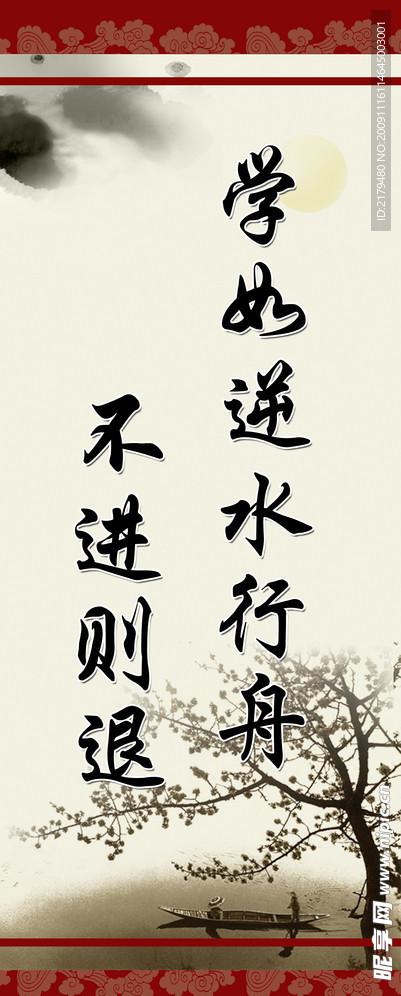 学如逆水行舟
不进则退
ID:2179480 NO:20091111611464500​3001
昵享网 www.nipic.cn